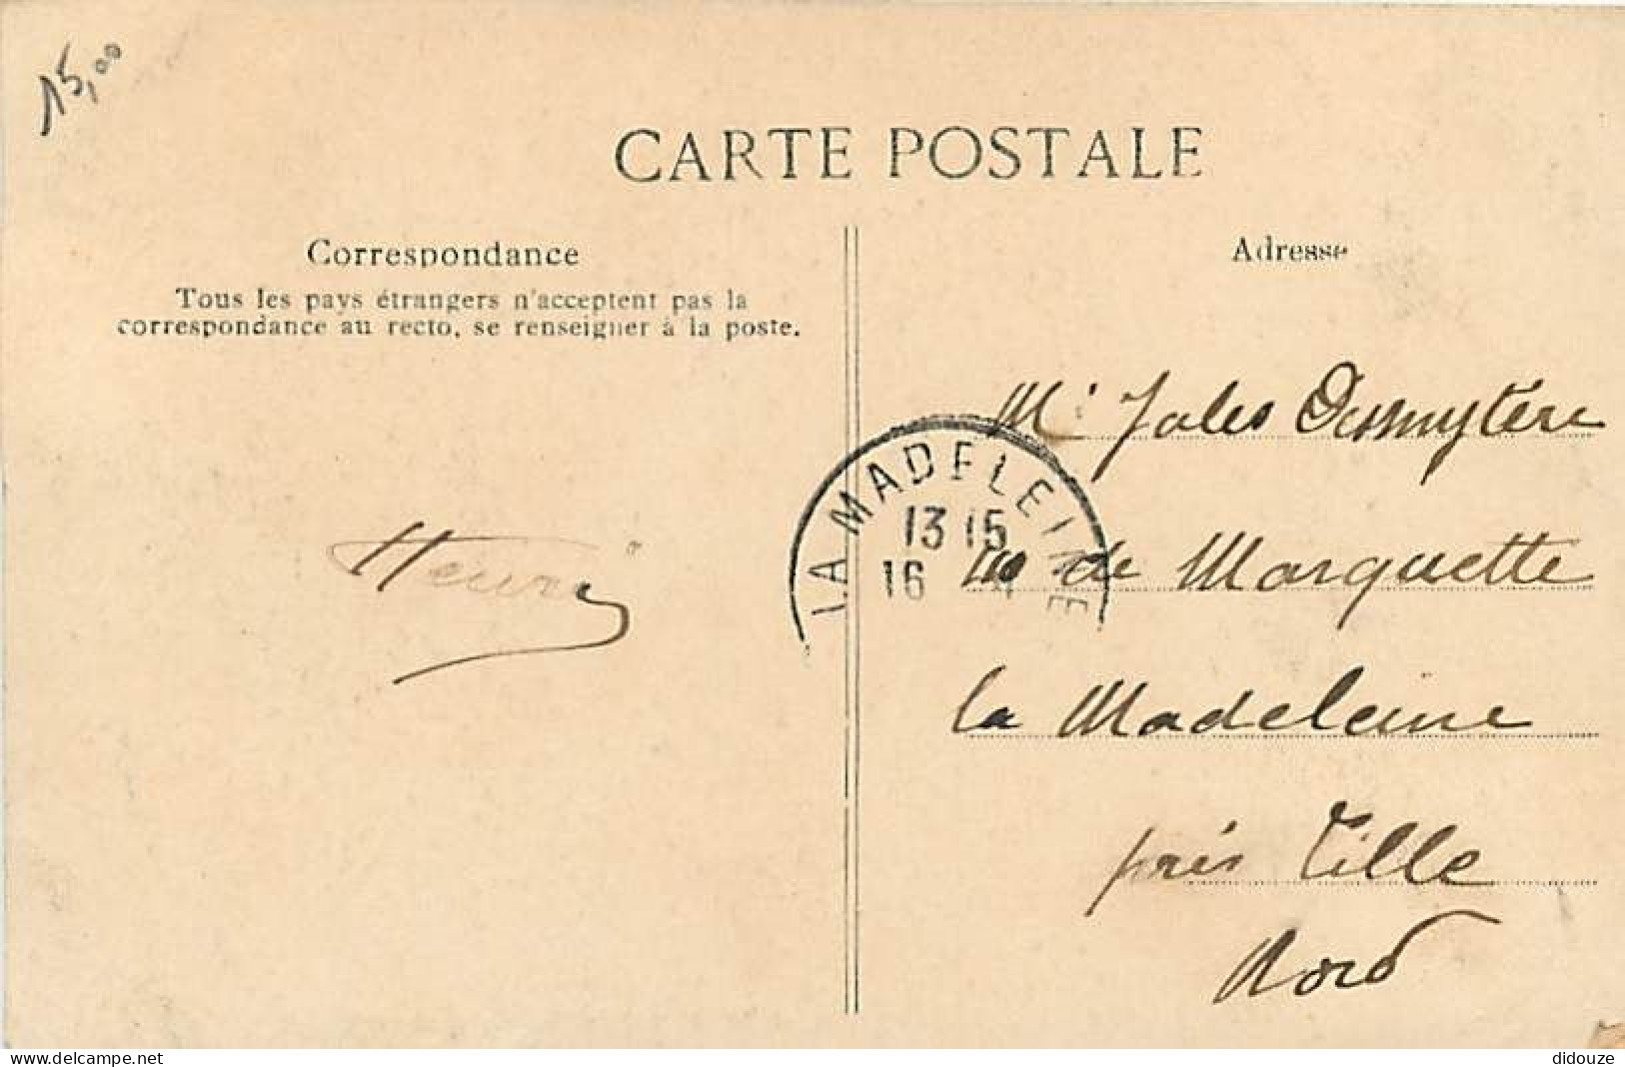 15,00
CARTE POSTALE
Correspondance
Tous les pays étrangers n'acceptent pas la
correspondance au recto, se renseigner à la poste.
Henri
Adresse
Mr Jules Desmytère
LA MADELEINE
13 15
16
de Marquette
la Madeleine
près Lille
Nord
www.delcampe.net
didouze